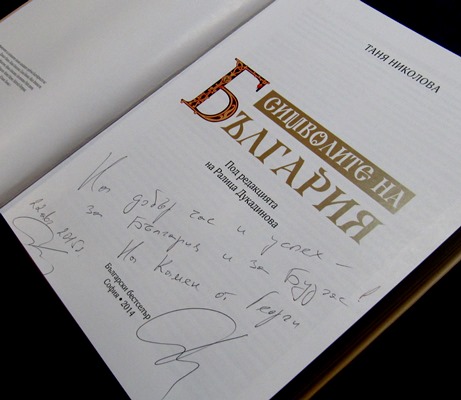 ТАНЯ НИКОЛОВА
СИМВОЛИТЕ НА
БЪЛГАРИЯ
Под редакцията
на Ралица Дукадинова
На добър час и успех –
за България и за Бургас!
На Камен от Георги
2015
Български бестселър
София • 2014